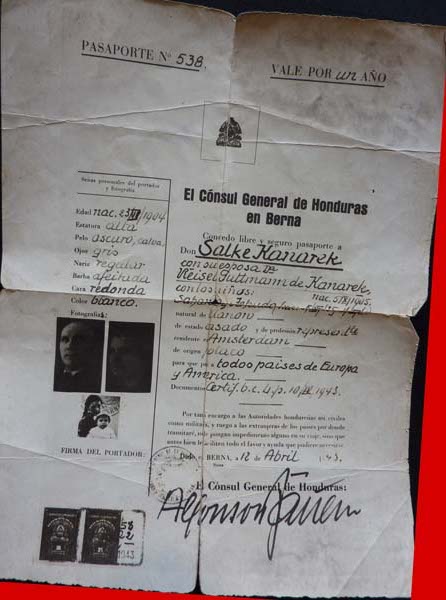 PASAPORTE Nº 538.
VALE POR un AÑO
Señas personales del portador
y fotografía
Edad nac. 23/III/1904
Estatura alta
Pelo oscuro, calvo.
Ojos gris
Nariz regular
Barba afeitada
Cara redonda
Color blanco.
Fotografías:
FIRMA DEL PORTADOR:
El Cónsul General de Honduras
en Berna
Concedo libre y seguro pasaporte a
Don Salke Kanarek
con su esposa Da
Reisel Guttmann de Kanarek,
nac. 5/IX/1905.
con los niños:
natural de
de estado casado y de profesión represent.te
residente en Amsterdam
de origen polaco
para que pase a todos países de Europa
y America.
Documentos: Certif. b. c. d. p. 1943.
Por tanto encargo a las Autoridades hondureñas así civiles
como militares, y ruego a las extranjeras de los países por donde
transitaré, no le pongan impedimento alguno en su viaje, sino que
antes bien le faciliten todo el favor y ayuda que pudiere necesitar.
Dado en BERNA, a 12 de Abril 1943.
El Cónsul General de Honduras:
1943